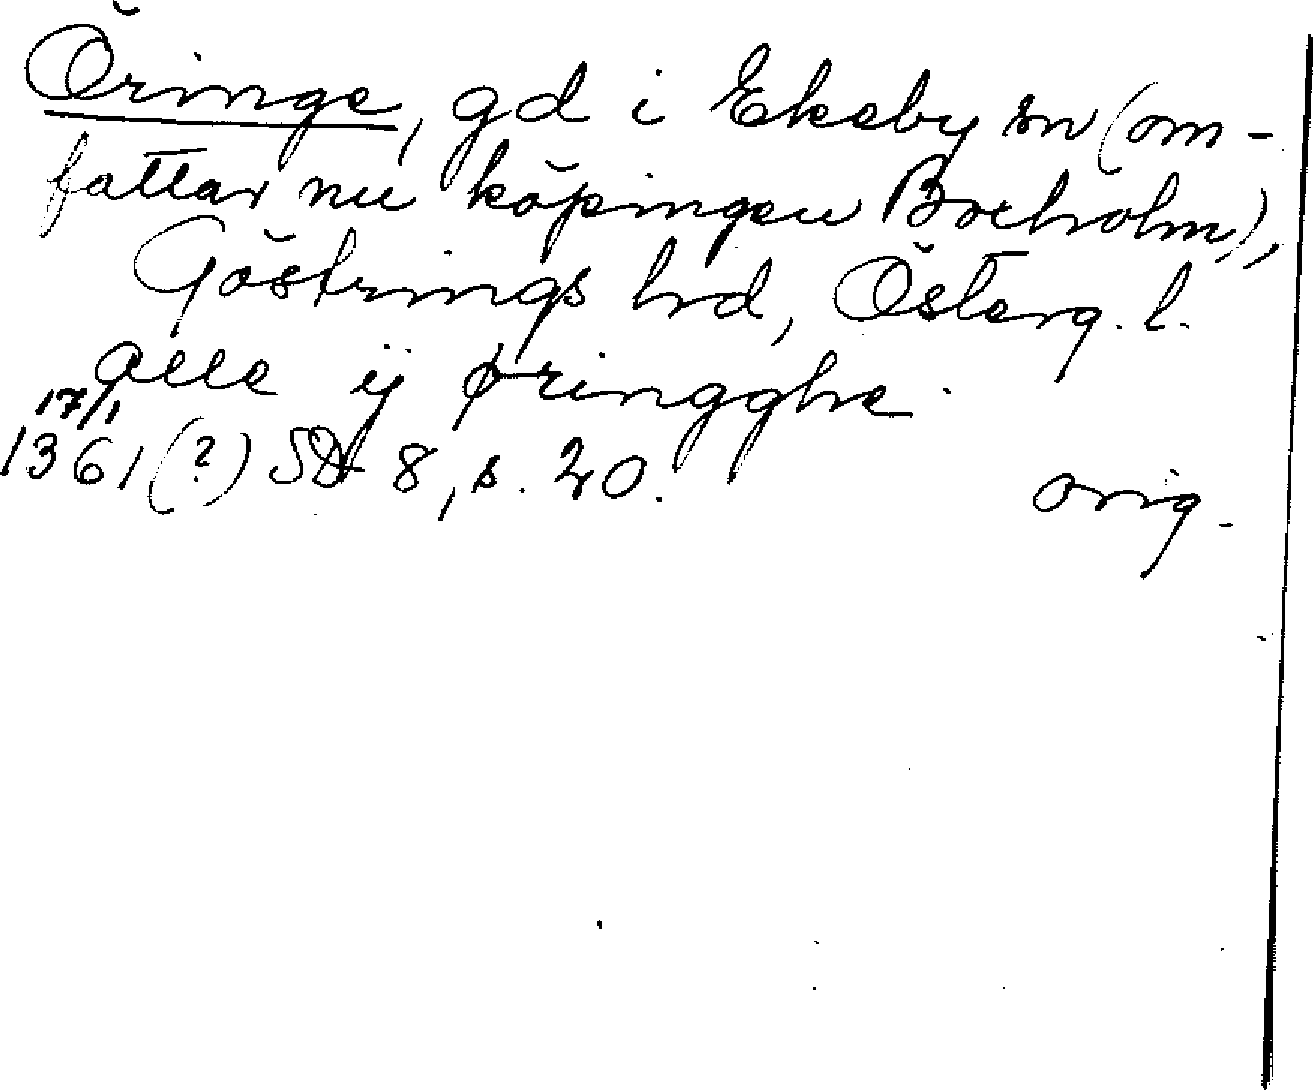 Öringe, gd i Ekeby sn (om-
fattar nu köpingen Boxholm),
Göstrings hd, Österg. l.
alle ij øringghe.
17/1
1361 (?) SD 8, s. 20.
orig.